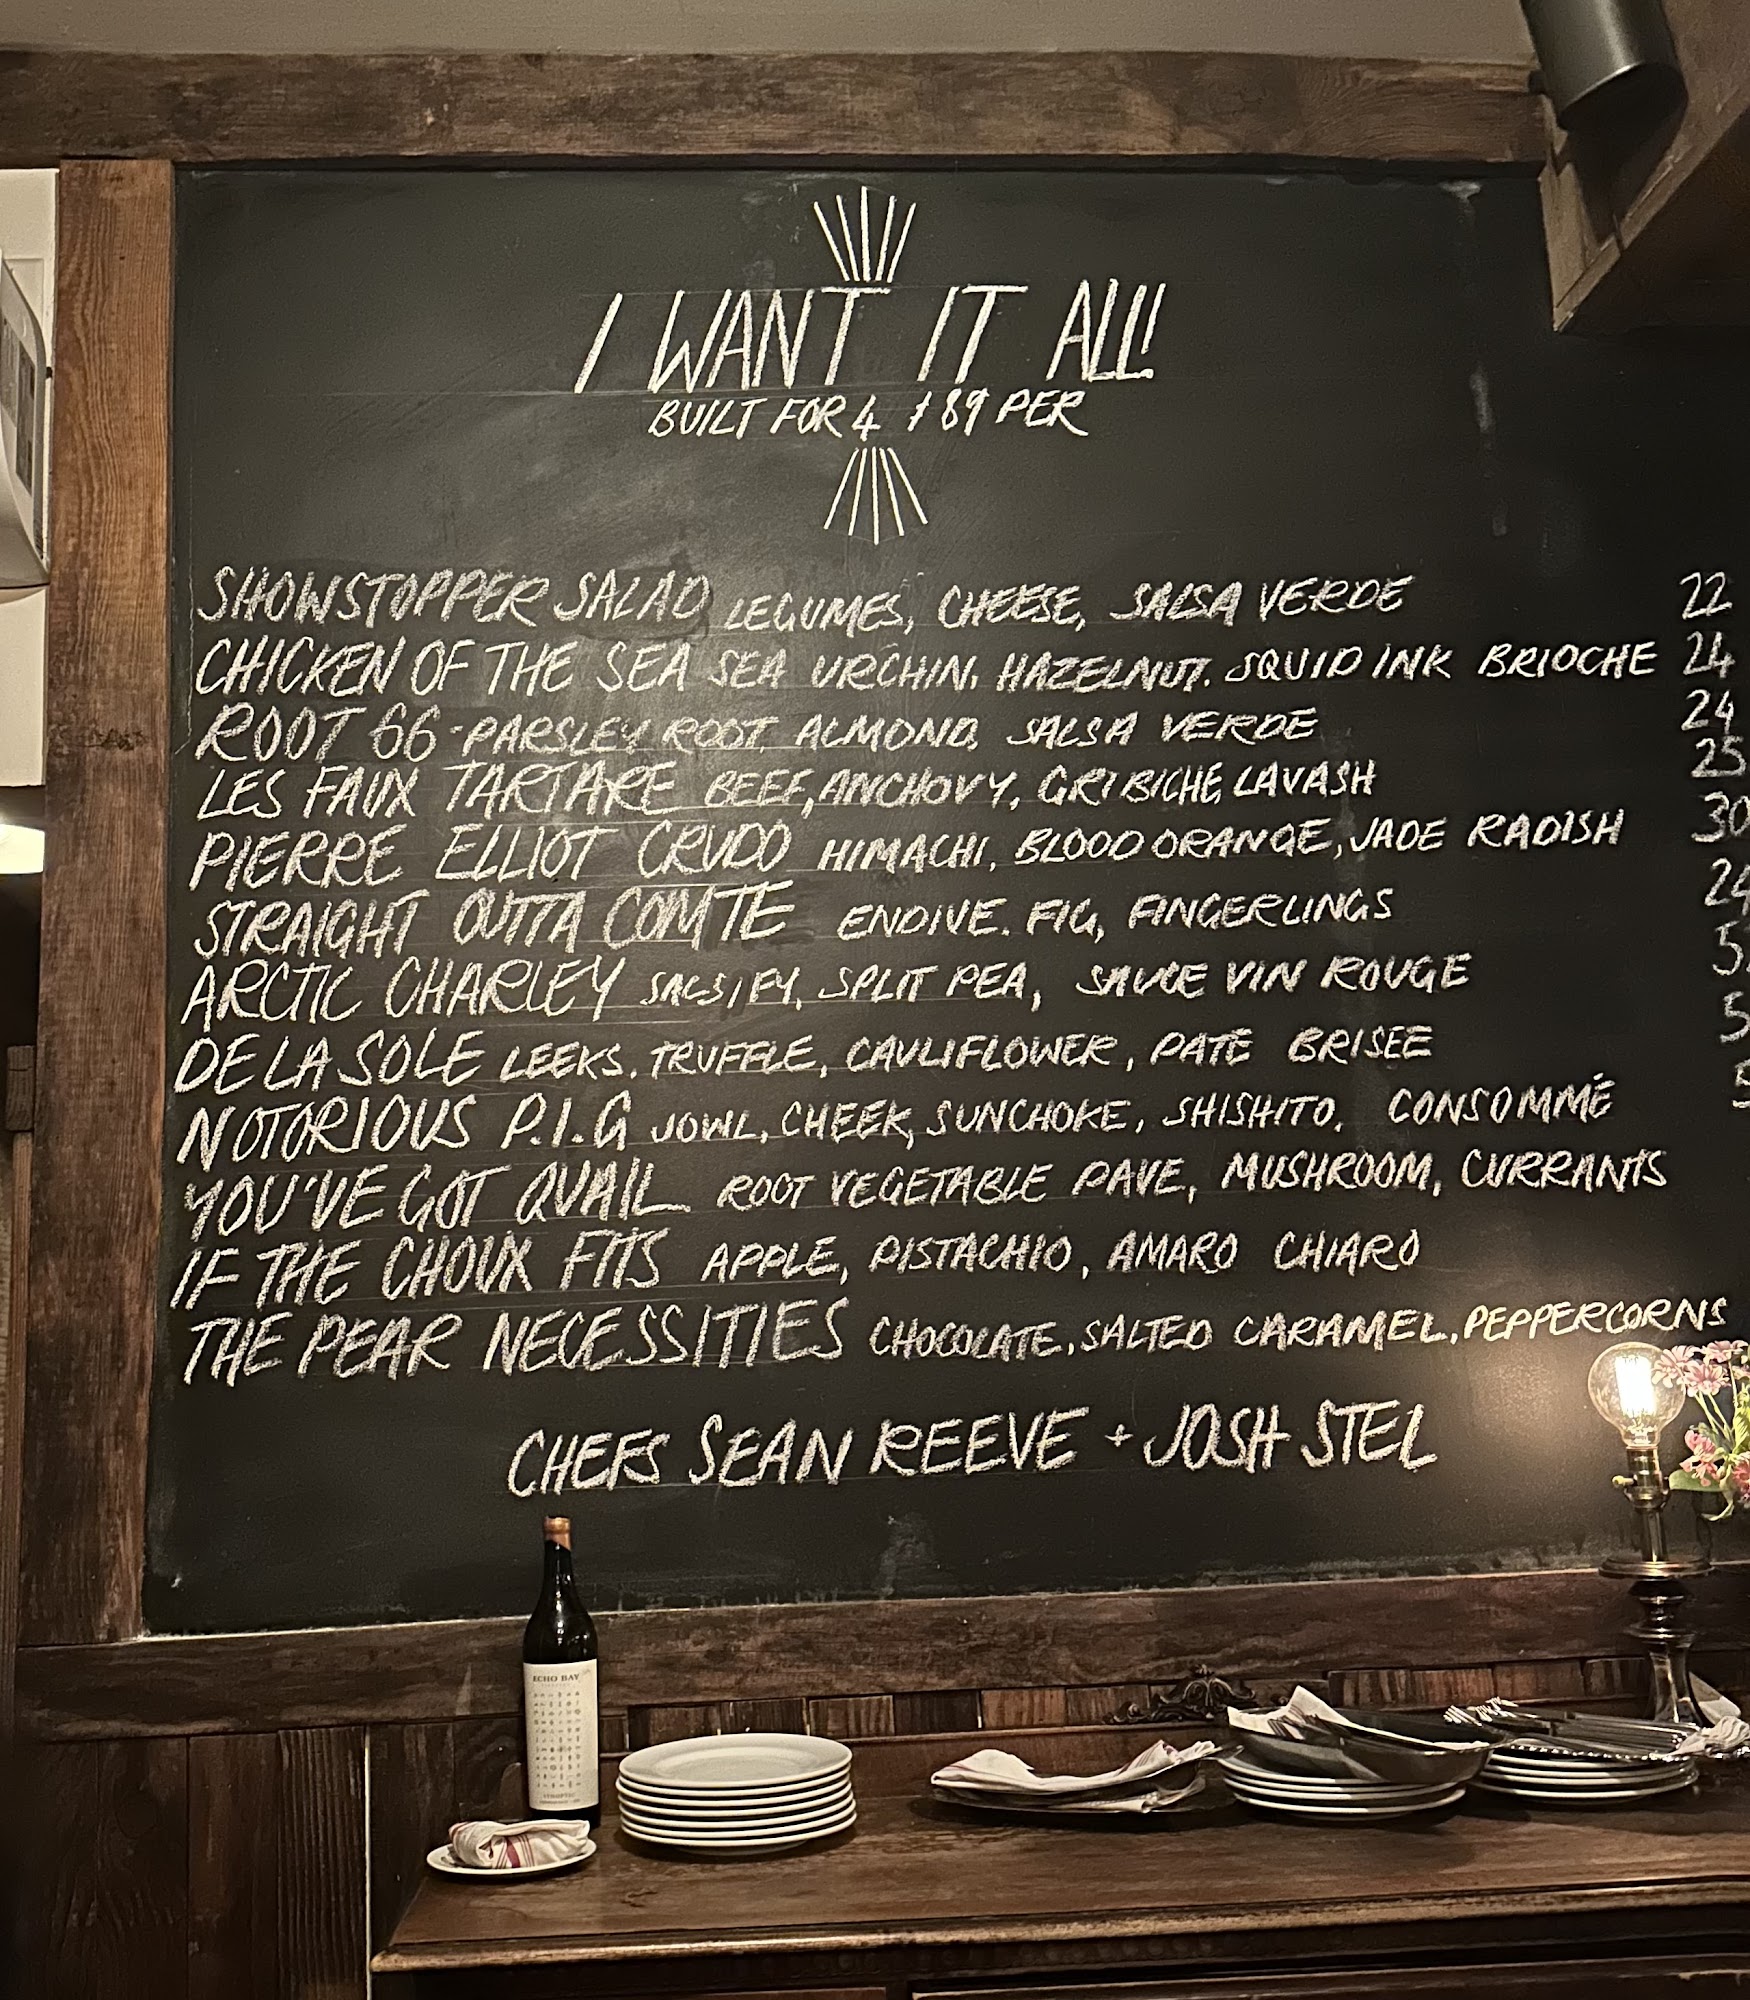 I WANT IT ALL!
BUILT FOR 4 $89 PER
SHOWSTOPPER SALAD LEGUMES, CHEESE, SALSA VERDE 22
CHICKEN OF THE SEA SEA URCHIN, HAZELNUT, SQUID INK BRIOCHE 24
ROOT 66 - PARSLEY ROOT, ALMOND, SALSA VERDE 24
LES FAUX TARTARE BEEF, ANCHOVY, GRIBICHE, LAVASH 25
PIERRE ELLIOT CRUDO HIMACHI, BLOOD ORANGE, JADE RADISH 30
STRAIGHT OUTTA COMTE ENDIVE, FIG, FINGERLINGS 24
ARCTIC CHARLEY SALSIFY, SPLIT PEA, SAUCE VIN ROUGE
DE LA SOLE LEEKS, TRUFFLE, CAULIFLOWER, PATE BRISEE
NOTORIOUS P.I.G JOWL, CHEEK, SUNCHOKE, SHISHITO, CONSOMMÉ
YOU'VE GOT QUAIL ROOT VEGETABLE PAVE, MUSHROOM, CURRANTS
IF THE CHOUX FITS APPLE, PISTACHIO, AMARO CHIARO
THE PEAR NECESSITIES CHOCOLATE, SALTED CARAMEL, PEPPERCORNS
CHEFS SEAN REEVE + JOSH STEL
ECHO BAY